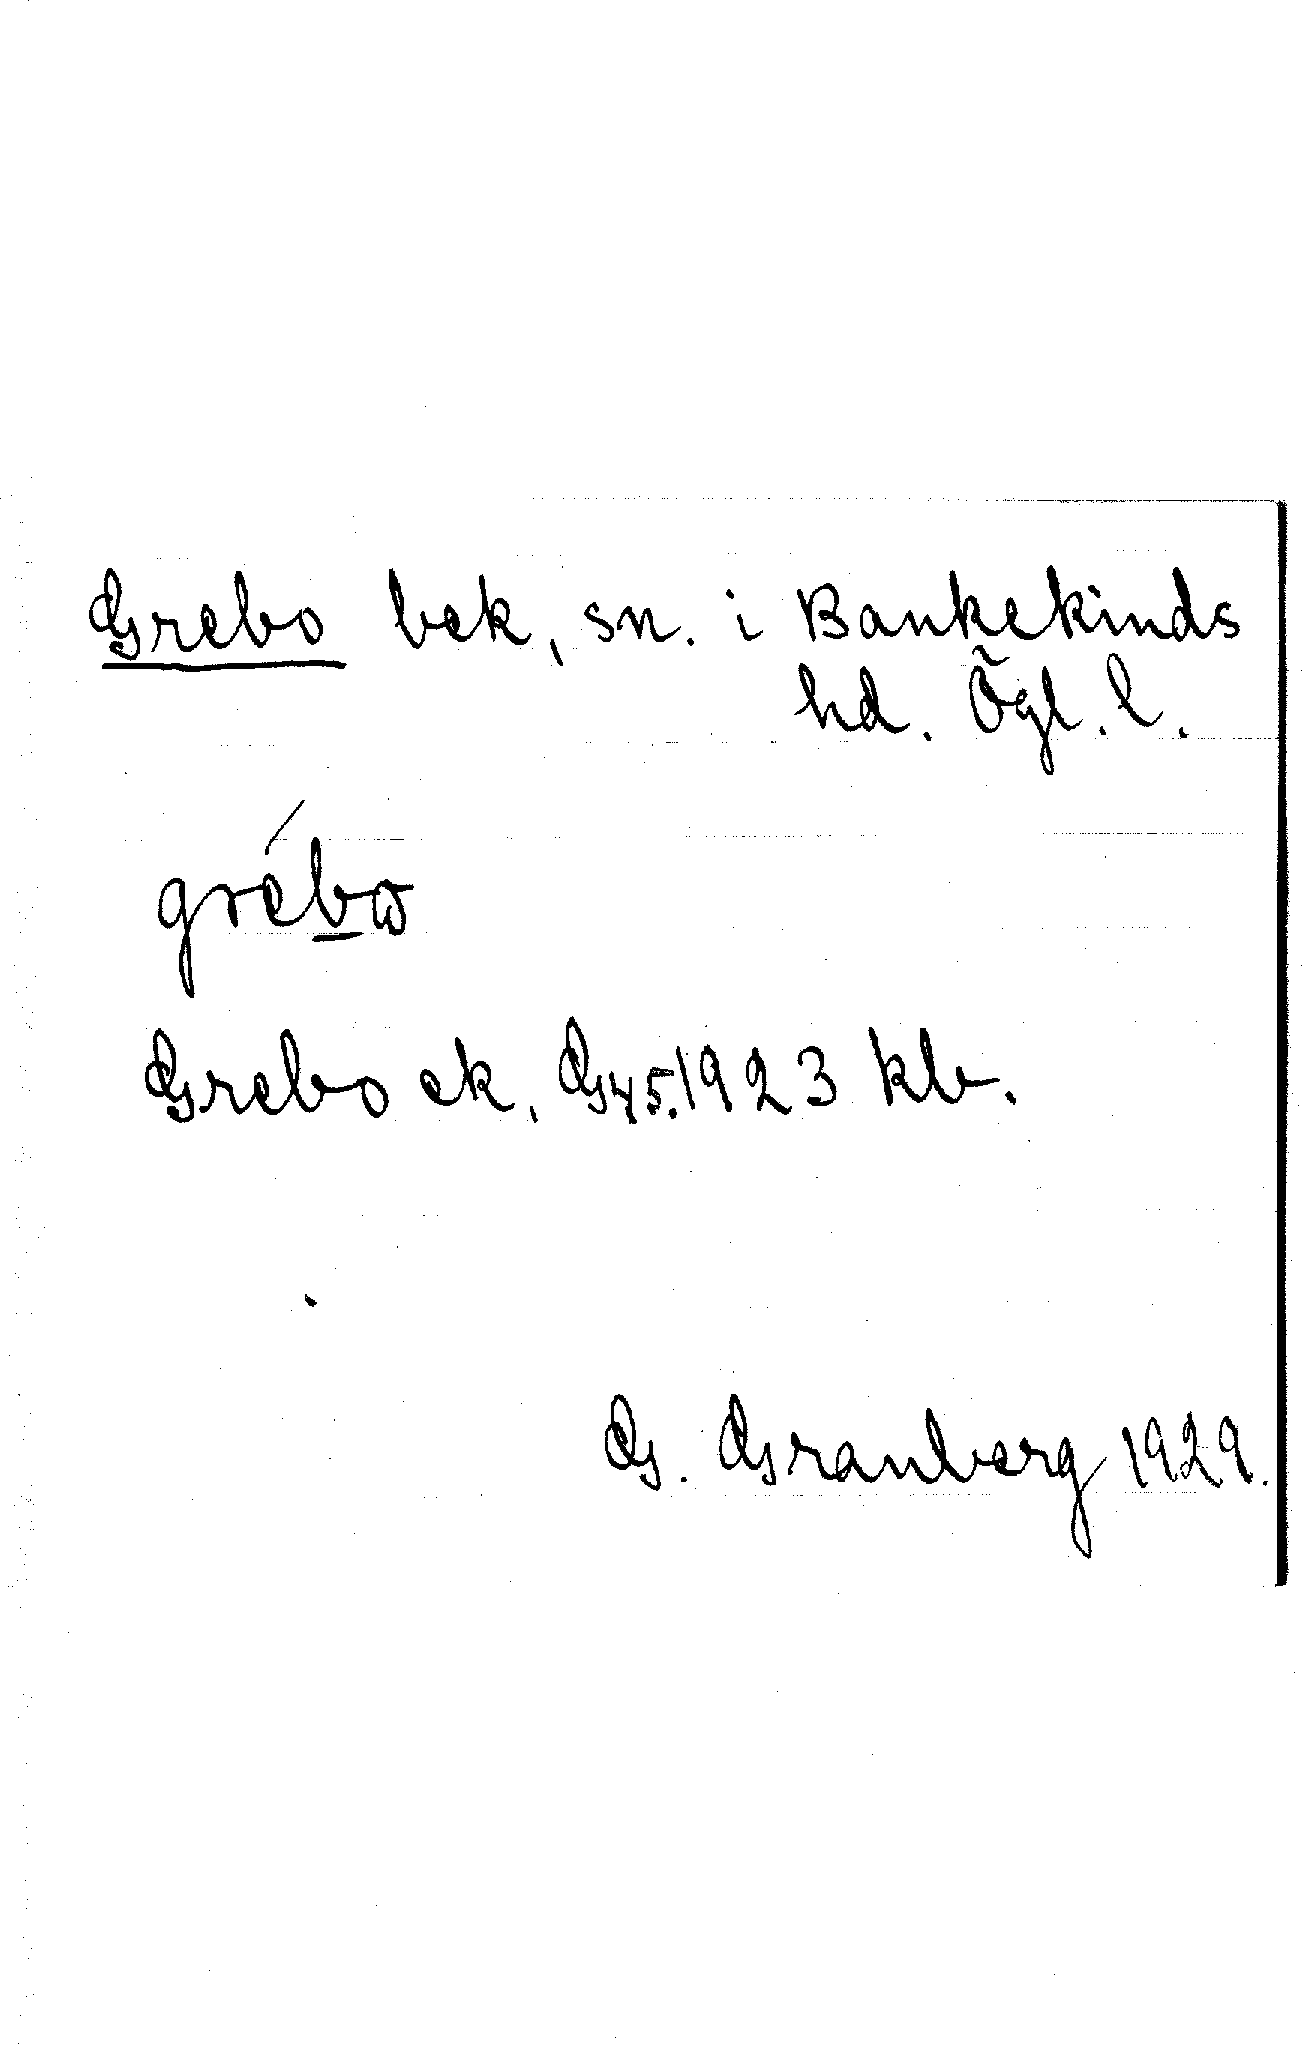 Grebo bek, sn. i Bankekinds
hd. Ögl. l.
grébω
Grebo ek. G45.1923 klv.
G. Granberg 1929.